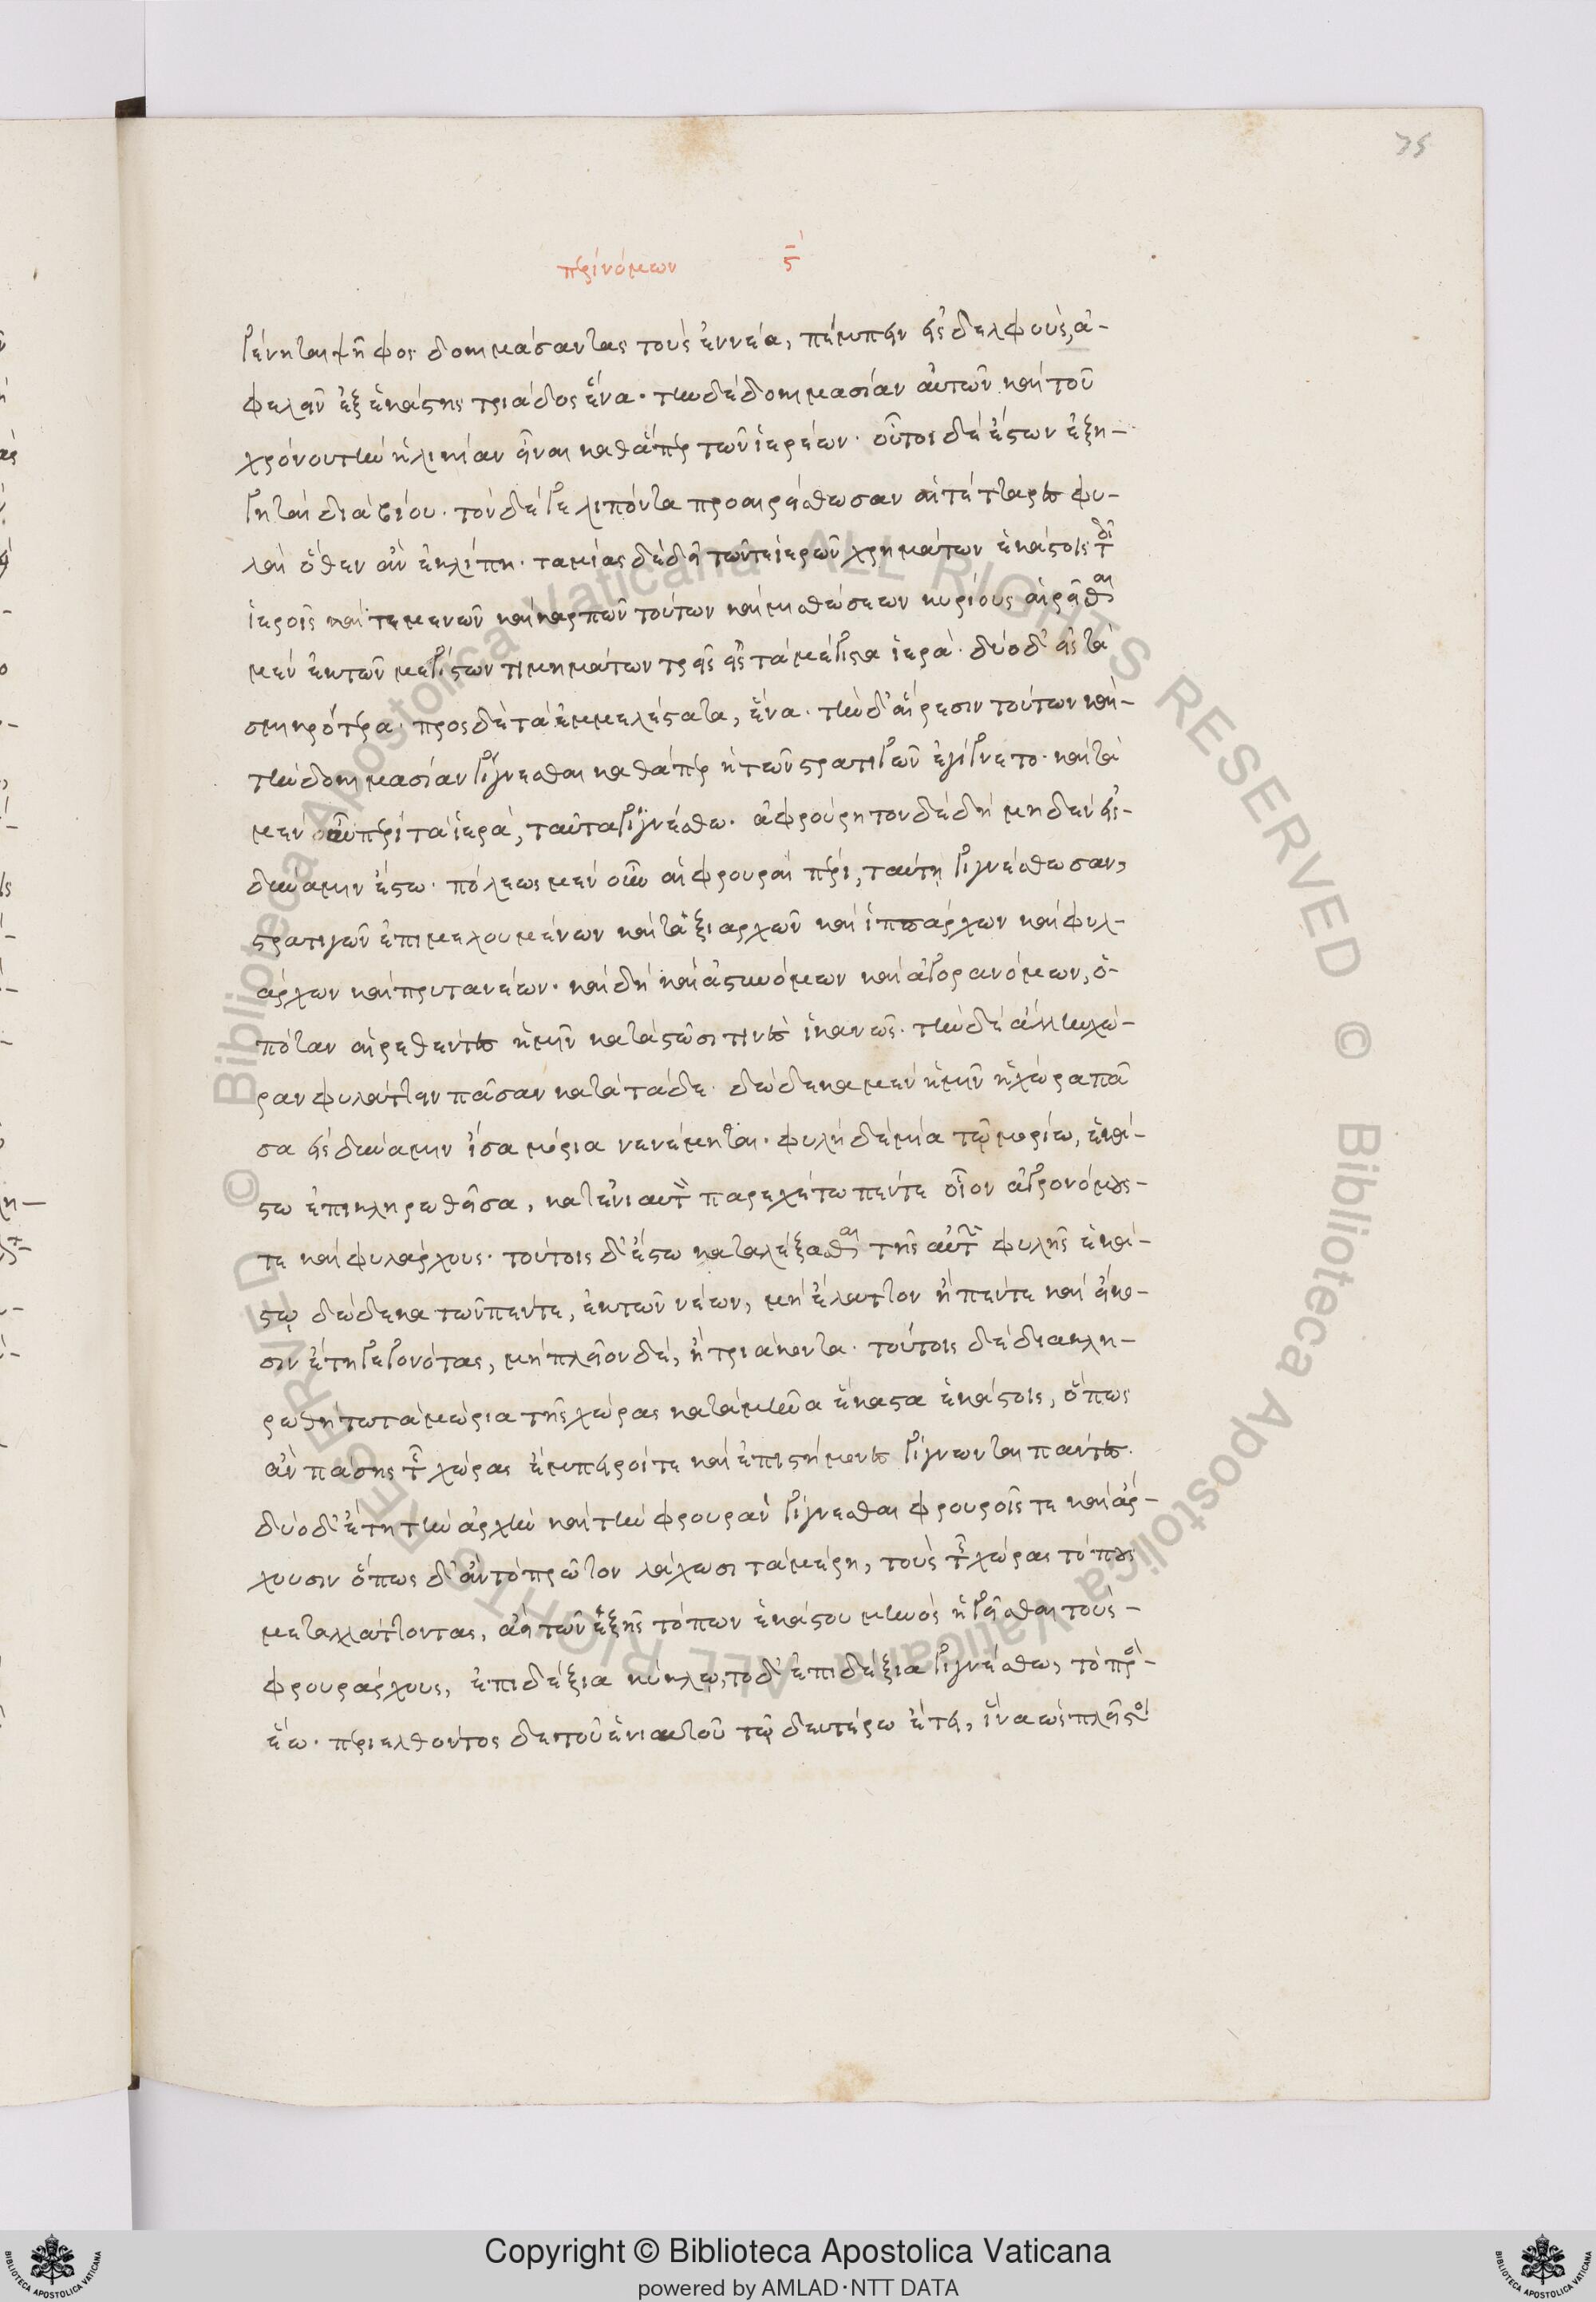 75
περὶ νόμων ϛ´
γένηται ψῆφος δοκιμάσαντας τοὺς ἐννέα, πέμπειν εἰς δελφοὺς, ἀ-
φελεῖν ἐξ ἑκάστης τριάδος ἕνα· τὴν δὲ δοκιμασίαν αὐτῶν καὶ τοῦ
χρόνου τὴν ἡλικίαν εἶναι καθάπερ τῶν ἱερέων· οὗτοι δὲ ἔστων ἐξη-
γηταὶ διὰ βίου· τὸν δέ γε λιπόντα προαιρείσθωσαν αἱ τέτταρες φυ-
λαὶ ὅθεν ἂν ἐκλίπη· ταμίας δὲ δὴ τῶν τε ἱερῶν χρημάτων ἑκάστοις τοῖς
ἱεροῖς καὶ τεμενῶν καὶ καρπῶν τούτων καὶ μισθώσεων κυρίους αἱρεῖσθαι
μὲν ἐκ τῶν μεγίστων τιμημάτων τρεῖς εἰς τὰ μέγιστα ἱερά· δύο δ' εἰς τὰ
σμικρότερα· πρὸς δὲ τὰ ἐμμελέστατα, ἕνα· τὴν δ' αἵρεσιν τούτων καὶ
τὴν δοκιμασίαν γίγνεσθαι καθάπερ ἡ τῶν στρατηγῶν ἐγίγνετο· καὶ τὰ
μὲν οὖν περὶ τὰ ἱερά, ταῦτα γιγνέσθω· ἀφρούρητον δὲ δὴ μηδὲν εἰς
δύναμιν ἔστω· πόλεως μὲν οὖν αἱ φρουραὶ πέρι, ταύτη γιγνέσθωσαν,
στρατηγῶν ἐπιμελουμένων καὶ ταξιαρχῶν καὶ ἱππάρχων καὶ φυλ-
άρχων καὶ πρυτανέων· καὶ δὴ καὶ ἀστυνόμων καὶ ἀγορανόμων, ὁ-
πόταν αἱρεθέντες ἡμῖν καταστῶσι τινὲς ἱκανῶς· τὴν δὲ ἄλλην χώ-
ραν φυλάττειν πᾶσαν κατὰ τάδε· δώδεκα μὲν ἡμῖν ἡ χώρα πᾶ
σα εἰς δύναμιν ἴσα μόρια νενέμηται· φυλὴ δὲ μία τῷ μορίω, ἑκά-
στω ἐπικληρωθεῖσα, κατ' ἐνιαυτὸν παρεχέτω πέντε οἷον ἀγρονόμους
τε καὶ φυλάρχους· τούτοις δ' ἔστω καταλέξασθαι τῆς αὑτῶν φυλῆς ἑκά-
στῳ δώδεκα τῶν πέντε, ἐκ τῶν νέων, μὴ ἔλαττον ἢ πέντε καὶ εἴκο-
σιν ἔτη γεγονότας, μὴ πλεῖον δὲ, ἢ τριάκοντα· τούτοις δὲ διακλη-
ρωθήτω τὰ μώρια τῆς χώρας κατὰ μῆνα ἕκαστα ἑκάστοις, ὅπως
ἂν πάσης τῆς χώρας ἔμπειροί τε καὶ ἐπιστήμονες γίγνωνται πάντες·
δύο δ' ἔτη τὴν ἀρχὴν καὶ τὴν φρουρὰν γίγνεσθαι φρουροῖς τε καὶ ἄρ-
χουσιν ὅπως δ' ἂν τὸ πρῶτον λάχωσι τὰ μέρη, τοὺς τῆς χώρας τόπους
μεταλλάττοντας, ἀεὶ τῶν ἑξῆς τόπων ἑκάστου μηνὸς ἡγεῖσθαι τοὺς
φρουράρχους, ἐπιδέξια κύκλῳ, τὸ δ' ἐπιδέξια γιγνέσθω, τὸ πρὸς
ἕω· περιελθόντος δὲ τοῦ ἐνιαυτοῦ τῷ δευτέρω ἔτει, ἵνα ὡς πλεῖστοι
© Biblioteca Apostolica Vaticana ALL RIGHTS RESERVED © Biblioteca Apostolica Vaticana ALL RIGHTS RESERVED
Copyright © Biblioteca Apostolica Vaticana
powered by AMLAD·NTT DATA
BIBLIOTECA APOSTOLICA VATICANA
BIBLIOTECA APOSTOLICA VATICANA